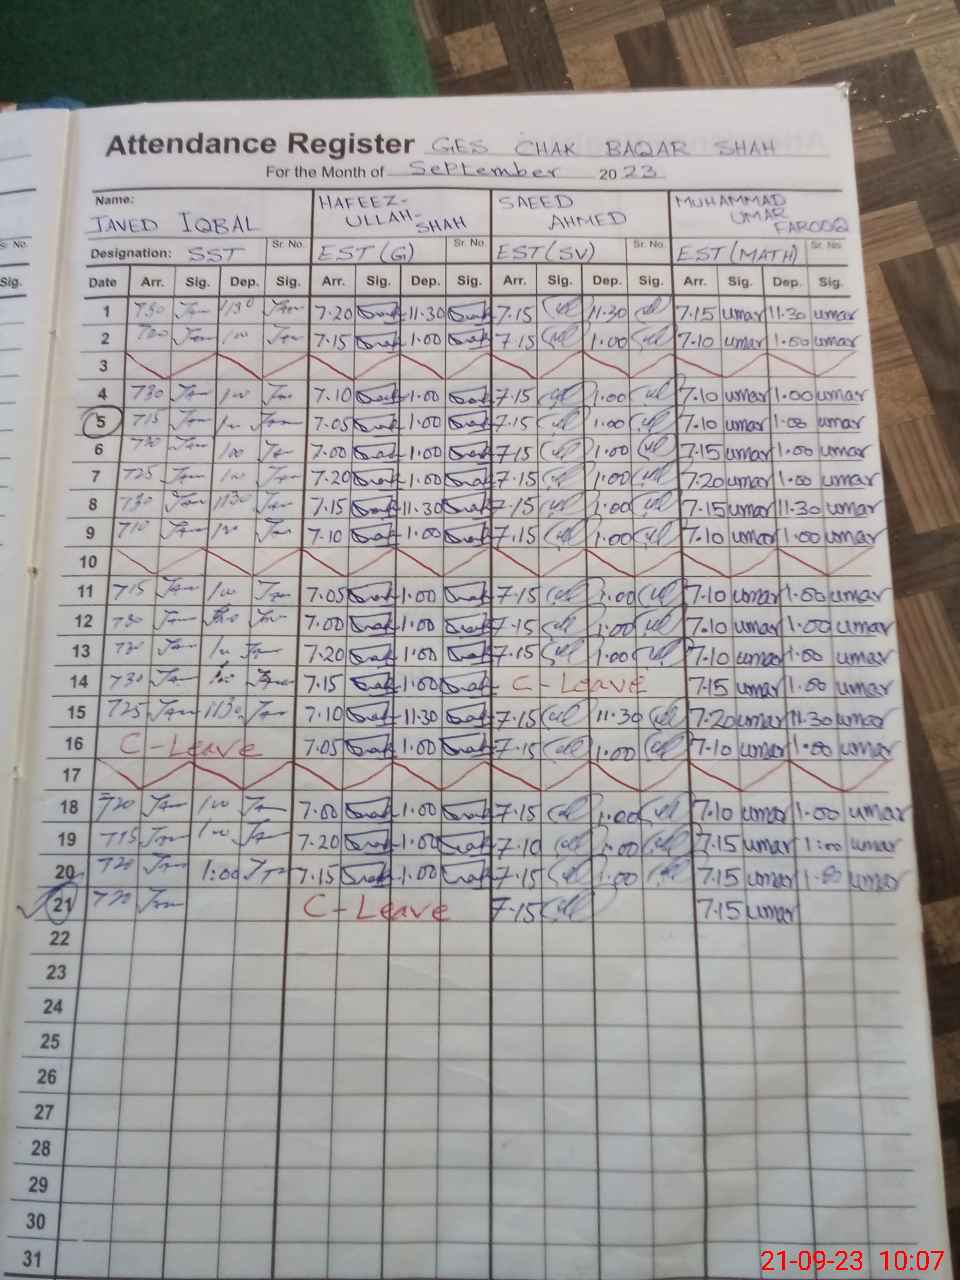 Attendance Register GES CHAK BAQAR SHAH
For the Month of September 2023
Name: JAVED IQBAL HAFEEZ-ULLAH-SHAH SAEED AHMED MUHAMMAD UMAR FAROOQ
S. No. Designation: SST Sr. No. EST (G) Sr. No. EST (SV) Sr. No. EST (MATH) Sr. No.
Sig. Date Arr. Sig. Dep. Sig. Arr. Sig. Dep. Sig. Arr. Sig. Dep. Sig. Arr. Sig. Dep. Sig.
1 730 1130 7.20 11.30 7.15 11.30 7.15 umar 11.30 umar
2 700 100 7.15 1.00 7.15 1.00 7.10 umar 1.00 umar
3
4 730 100 7.10 1.00 7.15 1.00 7.10 umar 1.00 umar
5 715 7.05 1.00 7.15 1.00 7.10 umar 1.00 umar
6 100 7.00 1.00 7.15 1.00 7.15 umar 1.00 umar
7 725 100 7.20 1.00 7.15 1.00 7.20 umar 1.00 umar
8 730 1130 7.15 11.30 7.15 1.00 7.15 umar 11.30 umar
9 710 7.10 1.00 7.15 1.00 7.10 umar 1.00 umar
10
11 715 100 7.05 1.00 7.15 1.00 7.10 umar 1.00 umar
12 730 7.00 1.00 7.15 1.00 7.10 umar 1.00 umar
13 7.20 1.00 7.15 1.00 7.10 umar 1.00 umar
14 730 7.15 1.00 C-Leave 7.15 umar 1.00 umar
15 725 1130 7.10 11.30 7.15 11.30 7.20 umar 11.30 umar
16 C-Leave 7.05 1.00 7.15 1.00 7.10 umar 1.00 umar
17
18 720 100 7.00 1.00 7.15 1.00 7.10 umar 1.00 umar
19 715 100 7.20 1.00 7.10 1.00 7.15 umar 1:00 umar
20 720 1:00 7.15 1.00 7.15 1.00 7.15 umar 1.00 umar
21 C-Leave 7.15 7.15 umar
22
23
24
25
26
27
28
29
30
31
21-09-23 10:07